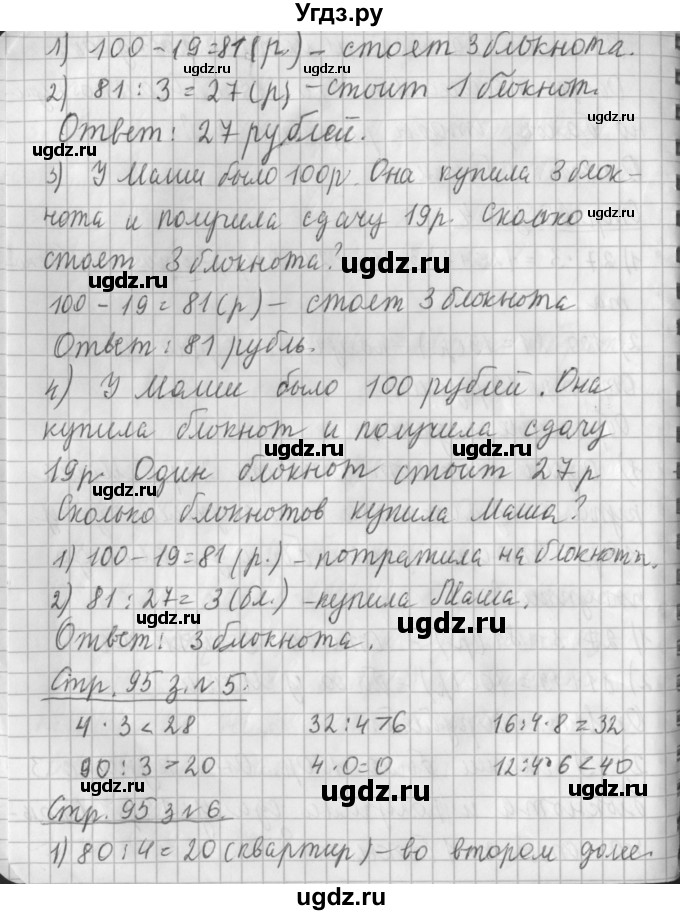 Угдз.ру
1) 100 - 19 = 81 (р.) - стоят 3 блокнота.
2) 81 : 3 = 27 (р) - стоит 1 блокнот.
Ответ: 27 рублей.
3) У Маши было 100р. Она купила 3 блок-
нота и получила сдачу 19р. Сколько
стоят 3 блокнота?
100 - 19 = 81 (р) - стоят 3 блокнота
Ответ: 81 рубль.
4) У Маши было 100 рублей. Она
купила блокнот и получила сдачу
19р. Один блокнот стоит 27 р
Сколько блокнотов купила Маша?
1) 100 - 19 = 81 (р.) - потратила на блокноты.
2) 81 : 27 = 3 (бл.) - купила Маша.
Ответ: 3 блокнота.
Стр. 95 з. №5.
4 · 3 < 28 32 : 4 > 6 16 : 4 · 8 = 32
90 : 3 > 20 4 · 0 = 0 12 : 4 · 6 < 40
Стр. 95 з №6.
1) 80 : 4 = 20 (квартир) - во втором доме.
ugdz.ru